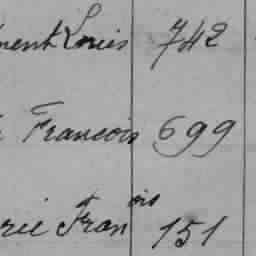 ment Louis 742
François 699
rie Franois 151